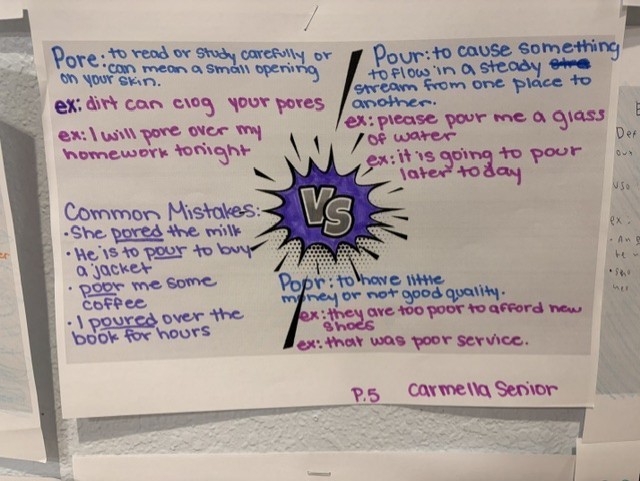 Pore: to read or study carefully or
can mean a small opening
on your skin.
ex: dirt can clog your pores
ex: I will pore over my
homework tonight
Pour: to cause something
to flow in a steady
stream from one place to
another.
ex: please pour me a glass
of water
ex: it is going to pour
later today
VS
Common Mistakes:
• She pored the milk
• He is to pour to buy
a jacket
• poor me some
coffee
• I poured over the
book for hours
Poor: to have little
money or not good quality.
ex: they are too poor to afford new
shoes
ex: that was poor service.
P.5 Carmella Senior